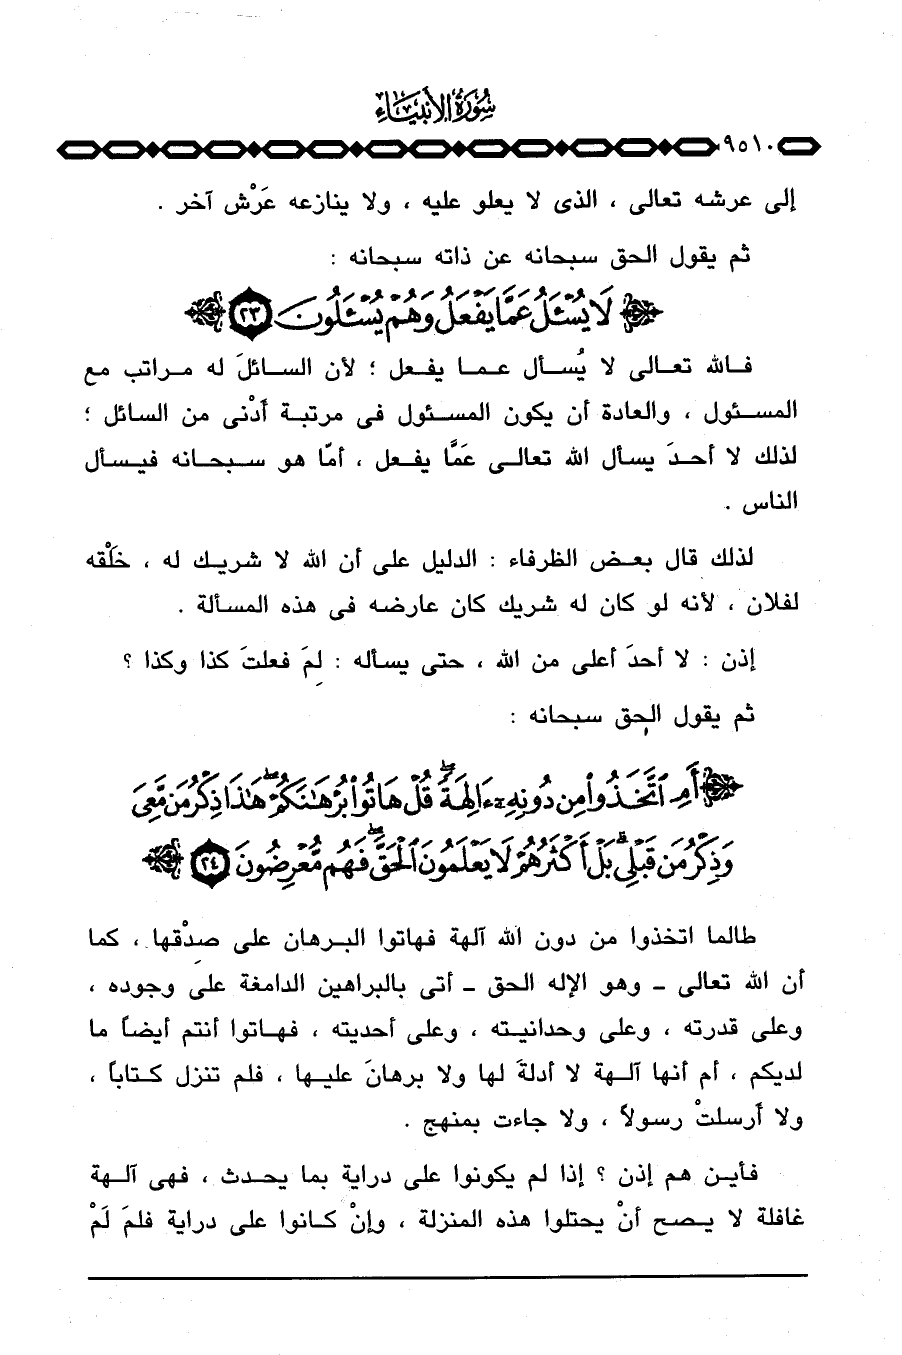 سُورَةُ الأَنْبِيَاءِ
٩٥١٠
إلى عرشه تعالى ، الذى لا يعلو عليه ، ولا ينازعه عَرْش آخر .
ثم يقول الحق سبحانه عن ذاته سبحانه :
﴿ لَا يُسْـَٔلُ عَمَّا يَفْعَلُ وَهُمْ يُسْـَٔلُونَ ٢٣ ﴾
فالله تعالى لا يُسأل عما يفعل ؛ لأن السائلَ له مراتب مع
المسئول ، والعادة أن يكون المسئول فى مرتبة أَدْنى من السائل ؛
لذلك لا أحدَ يسأل الله تعالى عَمَّا يفعل ، أمّا هو سبحانه فيسأل
الناس .
لذلك قال بعض الظرفاء : الدليل على أن الله لا شريك له ، خلْقه
لفلان ، لأنه لو كان له شريك كان عارضه فى هذه المسألة .
إذن : لا أحدَ أعلى من الله ، حتى يسأله : لِمَ فعلتَ كذا وكذا ؟
ثم يقول الحق سبحانه :
﴿ أَمِ ٱتَّخَذُوا۟ مِن دُونِهِۦٓ ءَالِهَةً ۖ قُلْ هَاتُوا۟ بُرْهَـٰنَكُمْ ۖ هَـٰذَا ذِكْرُ مَن مَّعِىَ
وَذِكْرُ مَن قَبْلِى ۗ بَلْ أَكْثَرُهُمْ لَا يَعْلَمُونَ ٱلْحَقَّ ۖ فَهُم مُّعْرِضُونَ ٢٤ ﴾
طالما اتخذوا من دون الله آلهة فهاتوا البرهان على صِدْقها ، كما
أن الله تعالى - وهو الإله الحق - أتى بالبراهين الدامغة على وجوده ،
وعلى قدرته ، وعلى وحدانيته ، وعلى أحديته ، فهاتوا أنتم أيضاً ما
لديكم ، أم أنها آلهة لا أدلةَ لها ولا برهانَ عليها ، فلم تنزل كتاباً ،
ولا أرسلتْ رسولاً ، ولا جاءت بمنهج .
فأين هم إذن ؟ إذا لم يكونوا على دراية بما يحدث ، فهى آلهة
غافلة لا يصح أنْ يحتلوا هذه المنزلة ، وإنْ كانوا على دراية فلمَ لَمْ